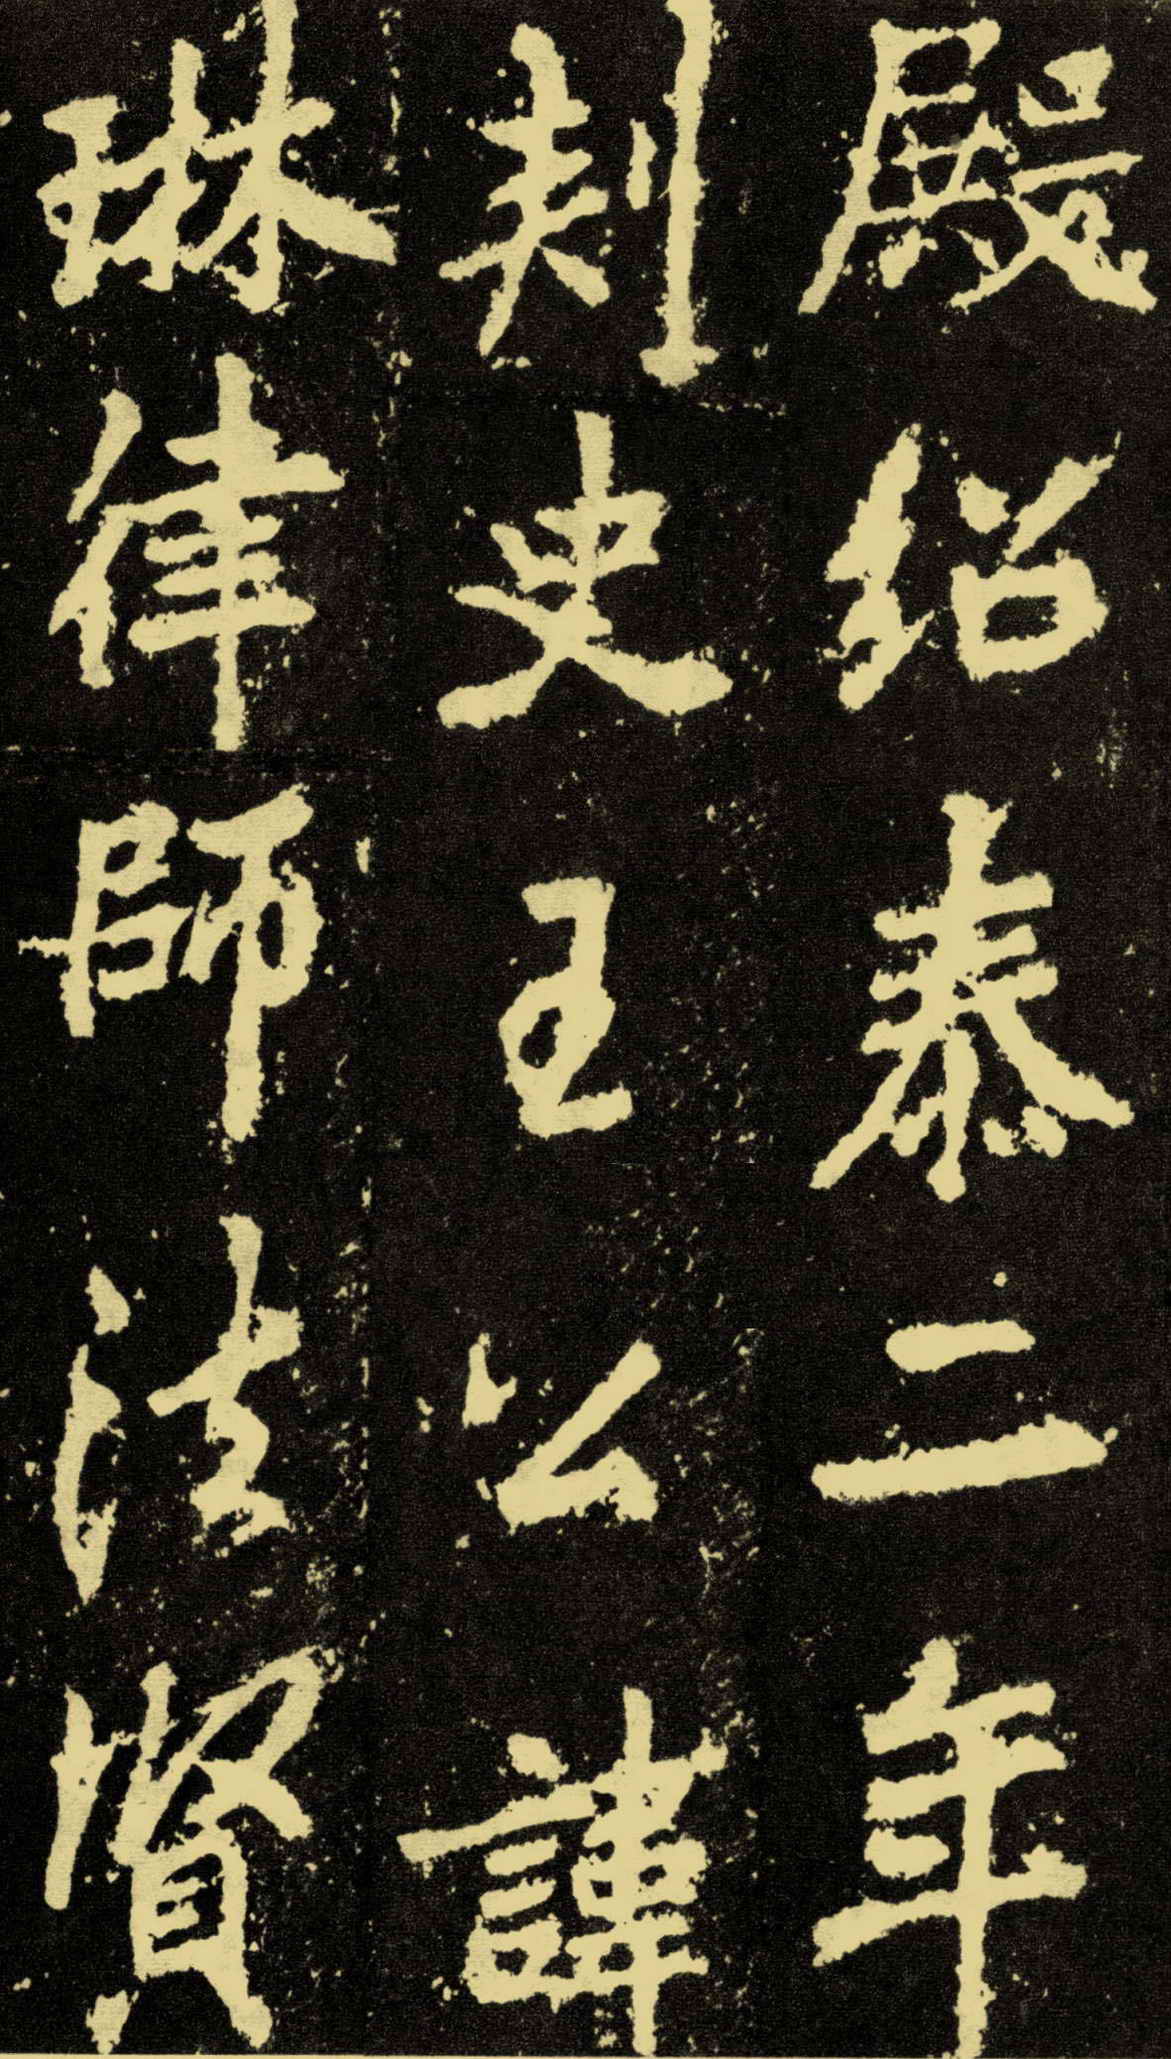 殿紹泰二年
刺史王公諱
琳律師法賢